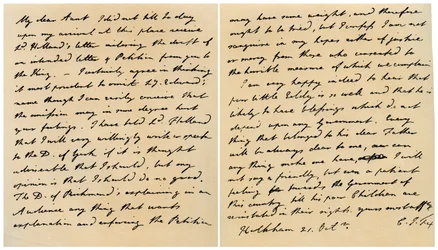 My dear Aunt I did not till to day
upon my arrival at this place receive
Ld Holland's letter inclosing the draft of
an intended letter & Petition from you to
the King. — I entirely agree in thinking
it most prudent to omit Ld Edward's
name though I can easily conceive that
the omission may in some degree hurt
your feelings. I have told Ld Holland
that I will very willingly write or speak
to the D. of York if it is thought
adviseable that I should, but my
opinion is that I should do no good.
The D. of Richmond's explaining in an
Audience any thing that wants
explanation and enforcing the Petition
may have some weight, and therefore
ought to be tried, but I confess I am not
sanguine in my hopes either of justice
or mercy from those who consented to
the horrible measure of which we complain
I am very happy indeed to hear that
poor little Eddy is so well and that he is
likely to have blessings which do not
depend upon any Government. Every
thing that belonged to his dear Father
will be always dear to me, nor can
any thing make me have I will
not say a friendly, but even a patient
feeling towards the Government of
this country till his poor Children are
reinstated in their rights. yours most affly
Holkham 21. Oct.
C. J. Fox